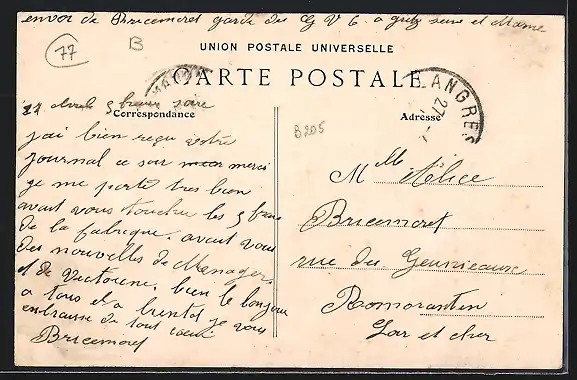 envoi de Bricemoret garde du G V C. a gretz seine et Marne
77
B
UNION POSTALE UNIVERSELLE
CARTE POSTALE
LANGRES
27
5 heure soire
Correspondance
Adresse
B205
jai bien reçu votre
journal ce soir merci
je me porte tres bien
avait vous toucher les 5 fran
de la fabrique. avait vous
des nouvelles de Menager
et de Victorine, bien le bonjour
a tous et a bientot je vous
embrasse de tout coeur
Bricemoret
Mlle Alice
Bricemoret
rue des
Romorantin
Loir et cher